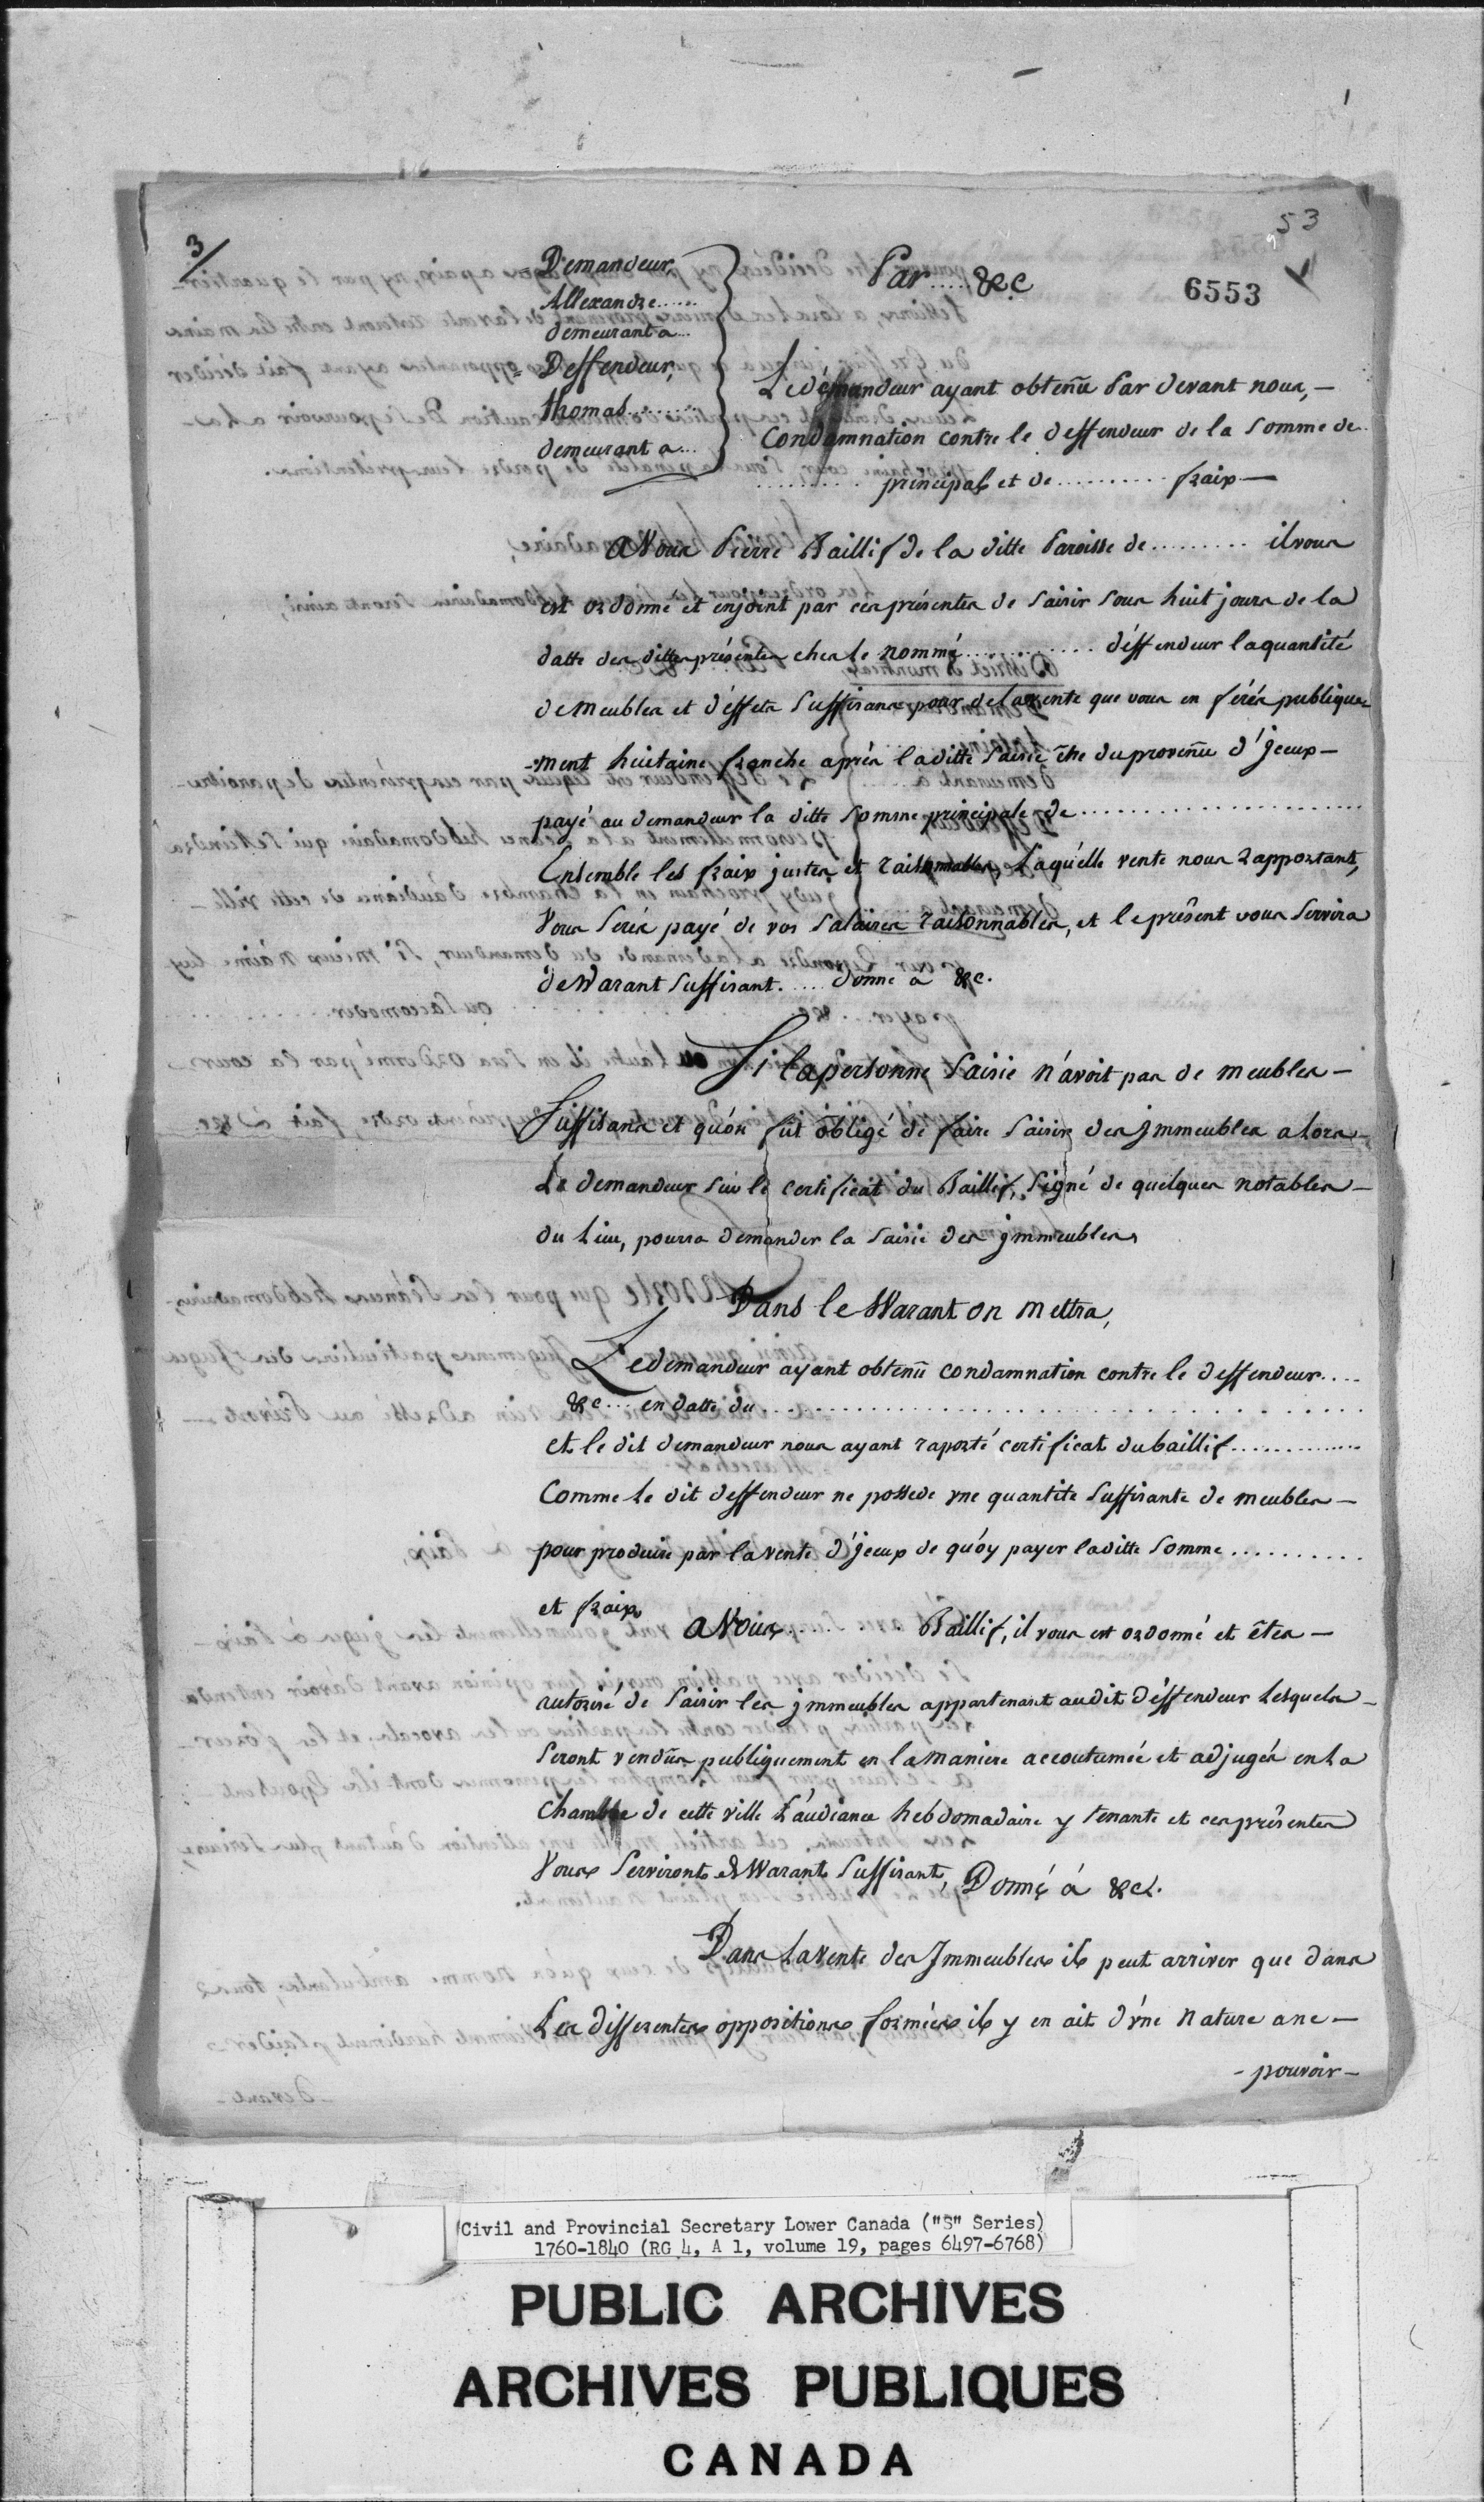 53
3/
6553
Demandeur,
Allexandre......
demeurant a...
Deffendeur,
thomas........
demeurant a...
Par.... &c
Le demandeur ayant obtenû Par devant nous, —
Condamnation contre le deffendeur de la somme de..
.......... principal et de .......... fraix —
A Vous Pierre Baillif de la ditte Paroisse de ......... il vous
est ordonné et enjoint par ces présentes de saisir sous huit jours de la
datte des dittes présentes ches le nommé ............ déffendeur la quantité
de meubles et d'éffets suffisans pour de la vente que vous en ferés publique=
-ment huitaine franche après la ditte saisie être du provenû d'jceux —
payé au demandeur la ditte somme principale de ......................
Ensemble les fraix justes et raisonnables, Laqu'elle vente nous rapportant,
Vous serés payé de vos salaires raisonnables, et le présent vous servira
de Warant suffisant. .... donné a &c.
Si la personne saisie n'avoit pas de meubles —
suffisans et qu'on fût obligé de faire saisir des jmmeubles alors —
Le demandeur sur le certificat du Baillif, signé de quelques notables —
du Lieu, pourra demander la saisie des jmmeubles,
Dans le Warant on mettra,
Le demandeur ayant obtenû condamnation contre le deffendeur....
&c .... en datte du ..............................
et le dit demandeur nous ayant raporté certificat du baillif ..............
Comme le dit deffendeur ne possede vne quantité suffisante de meubles —
pour produire par la vente d'jceux de qu'oy payer la ditte somme ...........
et fraix
A Vous .......... Baillif, il vous est ordonné et êtes —
autorisé de saisir les jmmeubles appartenant audit déffendeur Lesquels —
seront vendûs publiquement en la maniere accoutumée et adjugés en La
Chambre de cette ville L'audiance hebdomadaire y tenante et ces présentes
Vous serviront de Warant suffisant, Donné á &c.
Dans La Vente des Immeubles il peut arriver que dans
Les differentes oppositions formées il y en ait d'vne nature a ne —
- pouvoir —
Civil and Provincial Secretary Lower Canada ("S" Series)
1760-1840 (RG 4, A 1, volume 19, pages 6497-6768)
PUBLIC ARCHIVES
ARCHIVES PUBLIQUES
CANADA